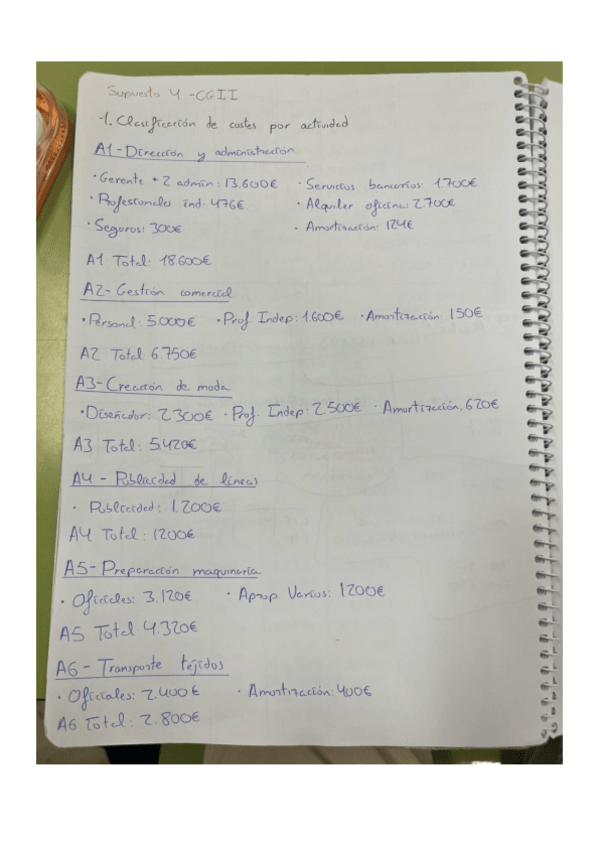 Supuesto 4 - CGII
1. Clasificación de costes por actividad
A1 - Dirección y administración
· Gerente + 2 admin: 13.600€ · Servicios bancarios: 1.700€
· Profesionales ind: 476€ · Alquiler oficina: 2.700€
· Seguros: 300€ · Amortización: 124€
A1 Total: 18.600€
A2 - Gestión comercial
· Personal: 5000€ · Prof Indep: 1.600€ · Amortización: 150€
A2 Total 6.750€
A3 - Creación de moda
· Diseñador: 2300€ · Prof. Indep: 2500€ · Amortización, 620€
A3 Total: 5.420€
A4 - Publicidad de líneas
· Publicidad: 1.200€
A4 Total: 1200€
A5 - Preparación maquinaria
· Oficiales: 3.120€ · Aprop Varios: 1200€
A5 Total 4.320€
A6 - Transporte tejidos
· Oficiales: 2.400€ · Amortización: 400€
A6 Total: 2.800€